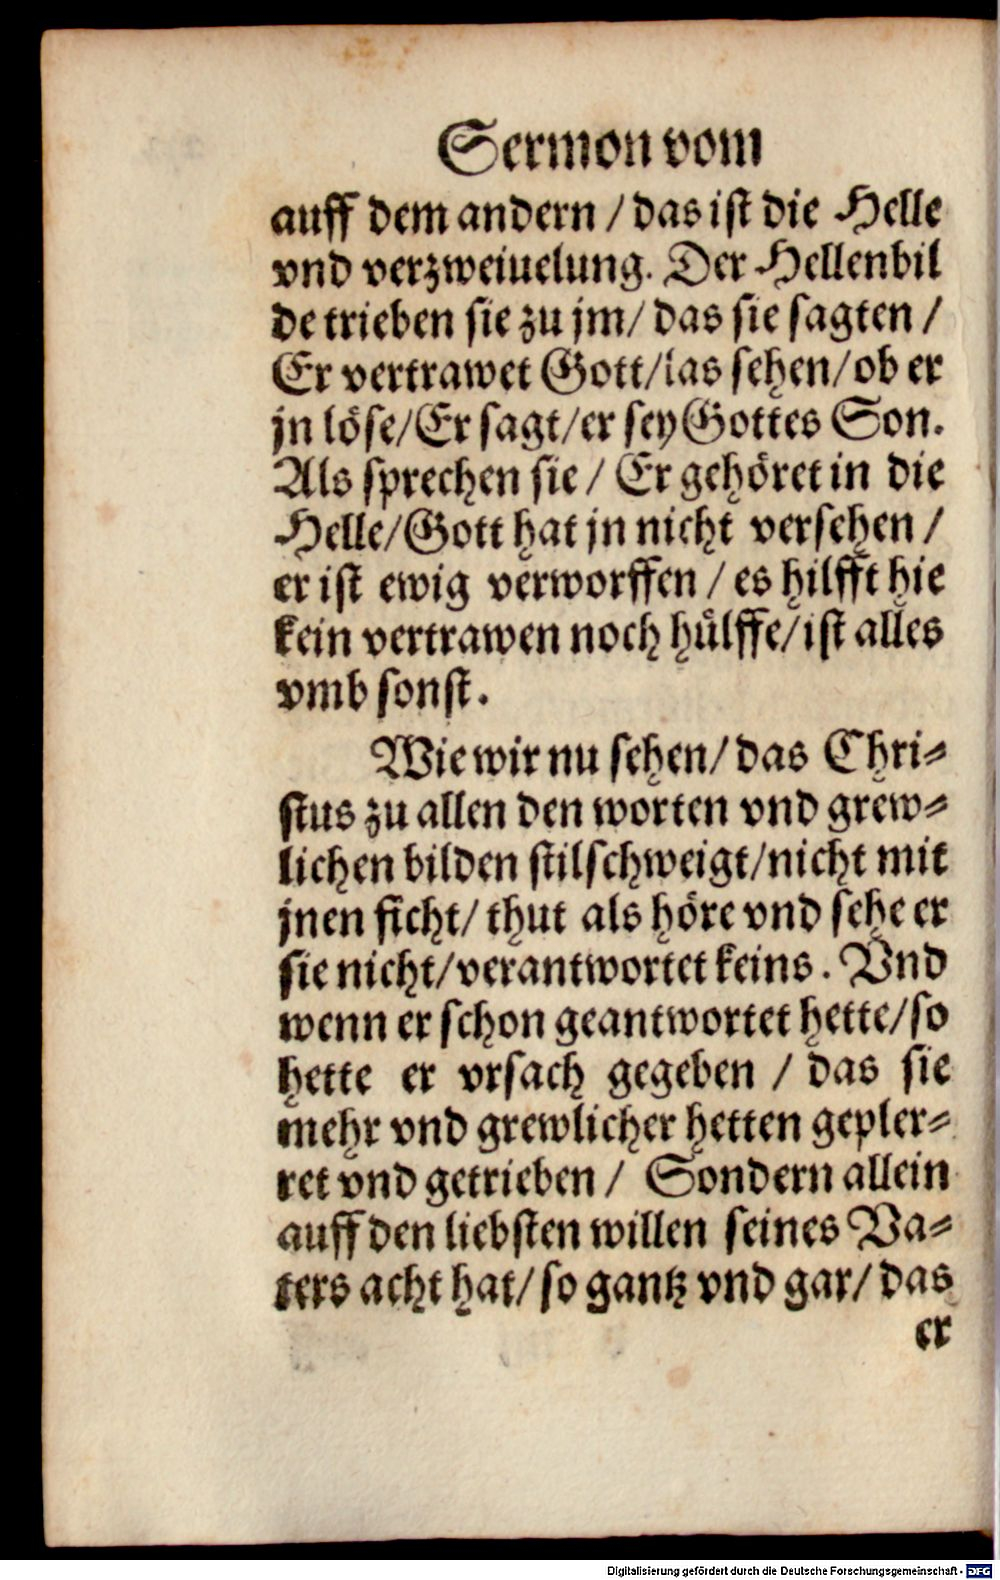 Sermon vom
auff dem andern / das ist die Helle
vnd verzweiuelung. Der Hellenbil
de trieben sie zu jm / das sie sagten /
Er vertrawet Gott / las sehen / ob er
jn löse / Er sagt / er sey Gottes Son.
Als sprechen sie / Er gehöret in die
Helle / Gott hat jn nicht versehen /
er ist ewig verworffen / es hilfft hie
kein vertrawen noch hülffe / ist alles
vmb sonst.
Wie wir nu sehen / das Chri-
stus zu allen den worten vnd grew-
lichen bilden stilschweigt / nicht mit
jnen ficht / thut als höre vnd sehe er
sie nicht / verantwortet keins. Vnd
wenn er schon geantwortet hette / so
hette er vrsach gegeben / das sie
mehr vnd grewlicher hetten gepler-
ret vnd getrieben / Sondern allein
auff den liebsten willen seines Va-
ters acht hat / so gantz vnd gar / das
er
Digitalisierung gefördert durch die Deutsche Forschungsgemeinschaft - DFG